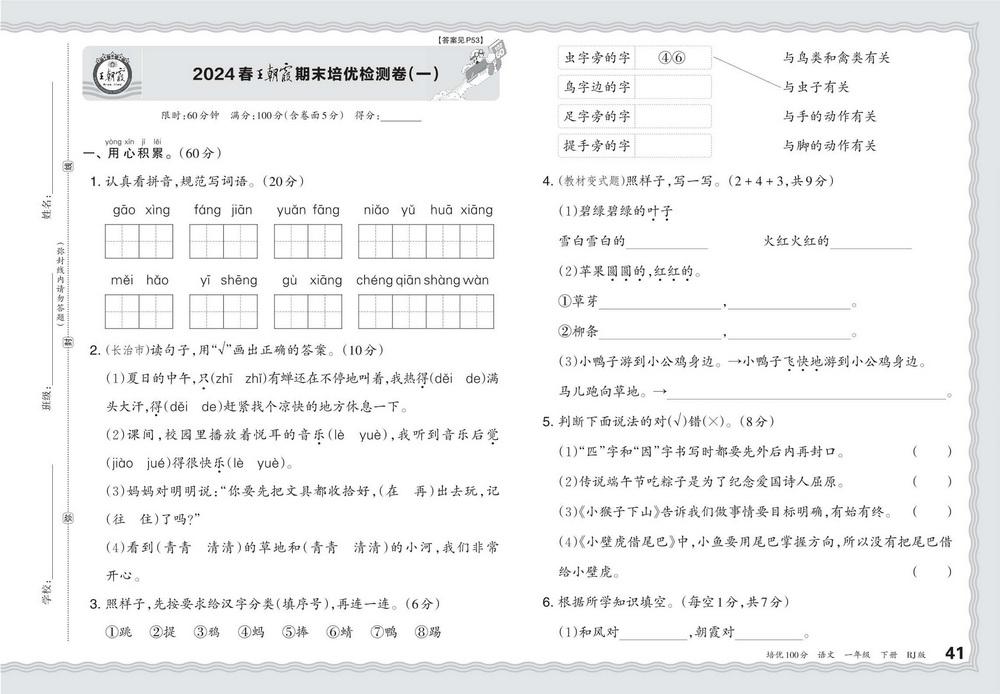 【答案见P53】
王朝霞
2024春王朝霞期末培优检测卷(一)
限时:60分钟 满分:100分(含卷面5分) 得分:________
yòng xīn jī lěi
一、用心积累。(60分)
1. 认真看拼音,规范写词语。(20分)
gāo xìng fáng jiān yuǎn fāng niǎo yǔ huā xiāng
měi hǎo yī shēng gù xiāng chéng qiān shàng wàn
2. (长治市)读句子,用“√”画出正确的答案。(10分)
(1)夏日的中午,只(zhī zhǐ)有蝉还在不停地叫着,我热得(děi de)满
头大汗,得(děi de)赶紧找个凉快的地方休息一下。
(2)课间,校园里播放着悦耳的音乐(lè yuè),我听到音乐后觉
(jiào jué)得很快乐(lè yuè)。
(3)妈妈对明明说:“你要先把文具都收拾好,(在 再)出去玩,记
(往 住)了吗?”
(4)看到(青青 清清)的草地和(青青 清清)的小河,我们非常
开心。
3. 照样子,先按要求给汉字分类(填序号),再连一连。(6分)
①跳 ②提 ③鸦 ④蚂 ⑤捧 ⑥蜻 ⑦鸭 ⑧踢
姓名:
班级:
学校:
(弥封线内请勿答题)
线
封
弥
虫字旁的字 ④⑥ 与鸟类和禽类有关
鸟字边的字 与虫子有关
足字旁的字 与手的动作有关
提手旁的字 与脚的动作有关
4. (教材变式题)照样子,写一写。(2+4+3,共9分)
(1)碧绿碧绿的叶子
雪白雪白的__________ 火红火红的__________
(2)苹果圆圆的,红红的。
①草芽______________,______________。
②柳条______________,______________。
(3)小鸭子游到小公鸡身边。→小鸭子飞快地游到小公鸡身边。
马儿跑向草地。→______________________________。
5. 判断下面说法的对(√)错(×)。(8分)
(1)“匹”字和“因”字书写时都要先外后内再封口。 ( )
(2)传说端午节吃粽子是为了纪念爱国诗人屈原。 ( )
(3)《小猴子下山》告诉我们做事情要目标明确,有始有终。 ( )
(4)《小壁虎借尾巴》中,小鱼要用尾巴掌握方向,所以没有把尾巴借
给小壁虎。 ( )
6. 根据所学知识填空。(每空1分,共7分)
(1)和风对________,朝霞对________。
培优100分 语文 一年级 下册 RJ版 41